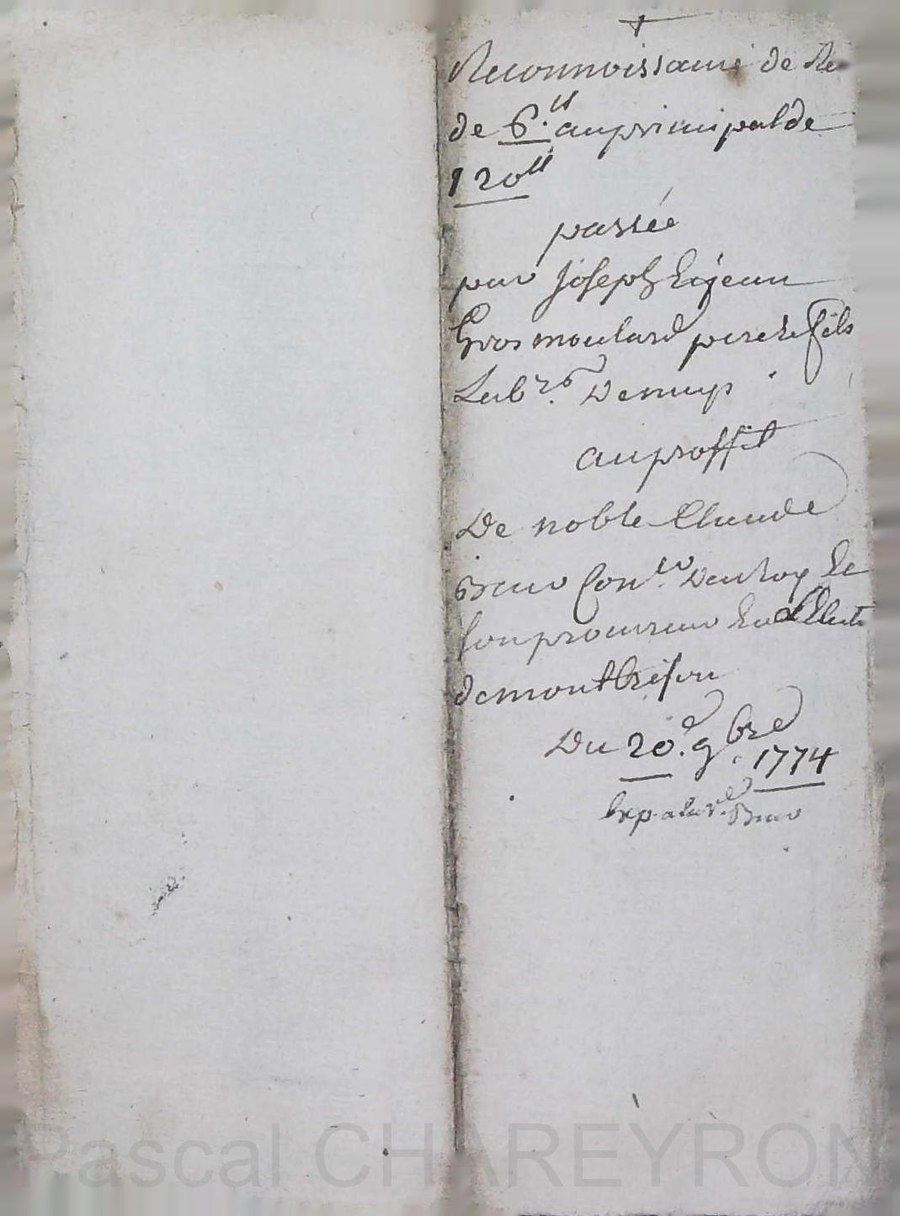 Reconnoissance de
de 6.ll au principal de
120ll
passée
par Joseph Et jean
Gros moulard pere et fils
Lab.rs
au proffit
De noble Claude
Con.er Du Roy Et
son procureur En L'Elect.
de montbrison
Du 20.e 9.bre 1774
Exp. a la
Pascal CHAREYRON